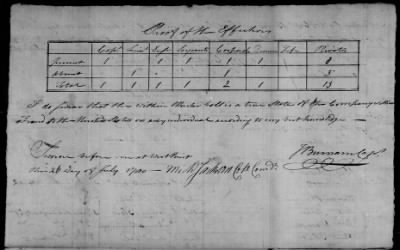 Proof of the Effectives
Capt. Lieut. Ensn. Serjeants Corporals Drumr. Fife Privates
Present 1 1 1 1 1 8
Absent 1 1 5
Total 1 1 1 1 2 1 13
I do swear that the within Muster Roll is a true State of the Company without
Fraud to the United States or any individual according to my best knowledge
Sworn before me at West Point
this 28 Day of July 1780 — Mich Jackson Col. Comdt.
J Burnam Capt.